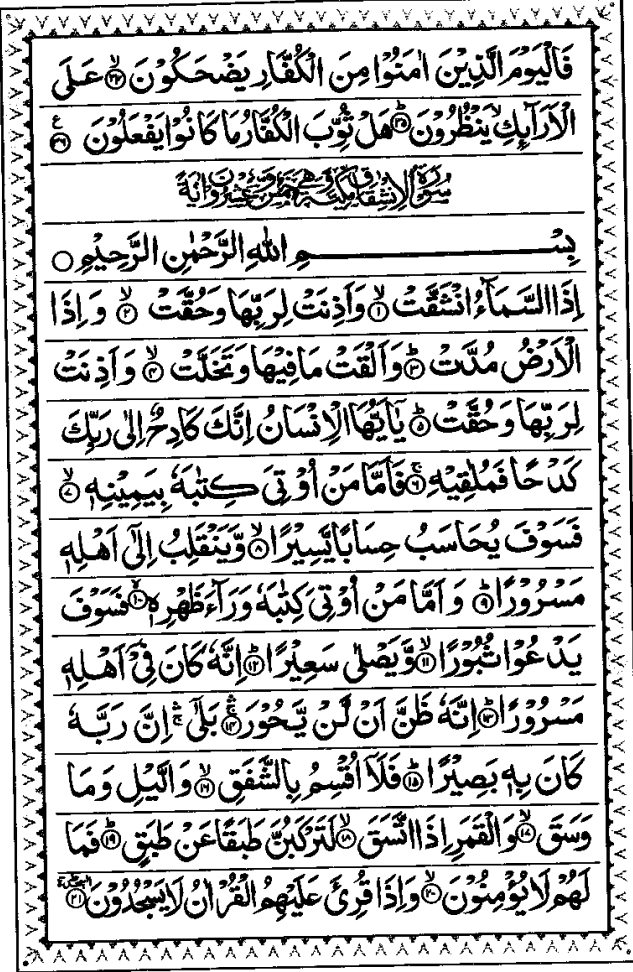 فَالْيَوْمَ الَّذِيْنَ اٰمَنُوْا مِنَ الْكُفَّارِ يَضْحَكُوْنَ ۙ﴿۳۴﴾ عَلَى
الْاَرَآىِٕكِ ۙ يَنْظُرُوْنَ ؕ﴿۳۵﴾ هَلْ ثُوِّبَ الْكُفَّارُ مَا كَانُوْا يَفْعَلُوْنَ ﴿۳۶﴾ ع
سُوْرَةُ الْاِنْشِقَاقِ مَكِّيَّةٌ وَّهِيَ خَمْسٌ وَّعِشْرُوْنَ اٰيَةً
بِسْمِ اللّٰهِ الرَّحْمٰنِ الرَّحِيْمِ ○
اِذَا السَّمَآءُ انْشَقَّتْ ۙ﴿۱﴾ وَاَذِنَتْ لِرَبِّهَا وَحُقَّتْ ۙ﴿۲﴾ وَاِذَا
الْاَرْضُ مُدَّتْ ؕ﴿۳﴾ وَاَلْقَتْ مَا فِيْهَا وَتَخَلَّتْ ۙ﴿۴﴾ وَاَذِنَتْ
لِرَبِّهَا وَحُقَّتْ ؕ﴿۵﴾ يٰۤاَيُّهَا الْاِنْسَانُ اِنَّكَ كَادِحٌ اِلٰى رَبِّكَ
كَدْحًا فَمُلٰقِيْهِ ۚ﴿۶﴾ فَاَمَّا مَنْ اُوْتِيَ كِتٰبَهٗ بِيَمِيْنِهٖ ۙ﴿۷﴾
فَسَوْفَ يُحَاسَبُ حِسَابًا يَّسِيْرًا ۙ﴿۸﴾ وَّيَنْقَلِبُ اِلٰٓى اَهْلِهٖ
مَسْرُوْرًا ؕ﴿۹﴾ وَاَمَّا مَنْ اُوْتِيَ كِتٰبَهٗ وَرَآءَ ظَهْرِهٖ ۙ﴿۱۰﴾ فَسَوْفَ
يَدْعُوْا ثُبُوْرًا ۙ﴿۱۱﴾ وَّيَصْلٰى سَعِيْرًا ؕ﴿۱۲﴾ اِنَّهٗ كَانَ فِيْۤ اَهْلِهٖ
مَسْرُوْرًا ؕ﴿۱۳﴾ اِنَّهٗ ظَنَّ اَنْ لَّنْ يَّحُوْرَ ۚۛ﴿۱۴﴾ بَلٰٓى ۚۛ اِنَّ رَبَّهٗ
كَانَ بِهٖ بَصِيْرًا ؕ﴿۱۵﴾ فَلَاۤ اُقْسِمُ بِالشَّفَقِ ۙ﴿۱۶﴾ وَالَّيْلِ وَمَا
وَسَقَ ۙ﴿۱۷﴾ وَالْقَمَرِ اِذَا اتَّسَقَ ۙ﴿۱۸﴾ لَتَرْكَبُنَّ طَبَقًا عَنْ طَبَقٍ ؕ﴿۱۹﴾ فَمَا
لَهُمْ لَا يُؤْمِنُوْنَ ۙ﴿۲۰﴾ وَاِذَا قُرِئَ عَلَيْهِمُ الْقُرْاٰنُ لَا يَسْجُدُوْنَ ﴿۲۱﴾ السجدة